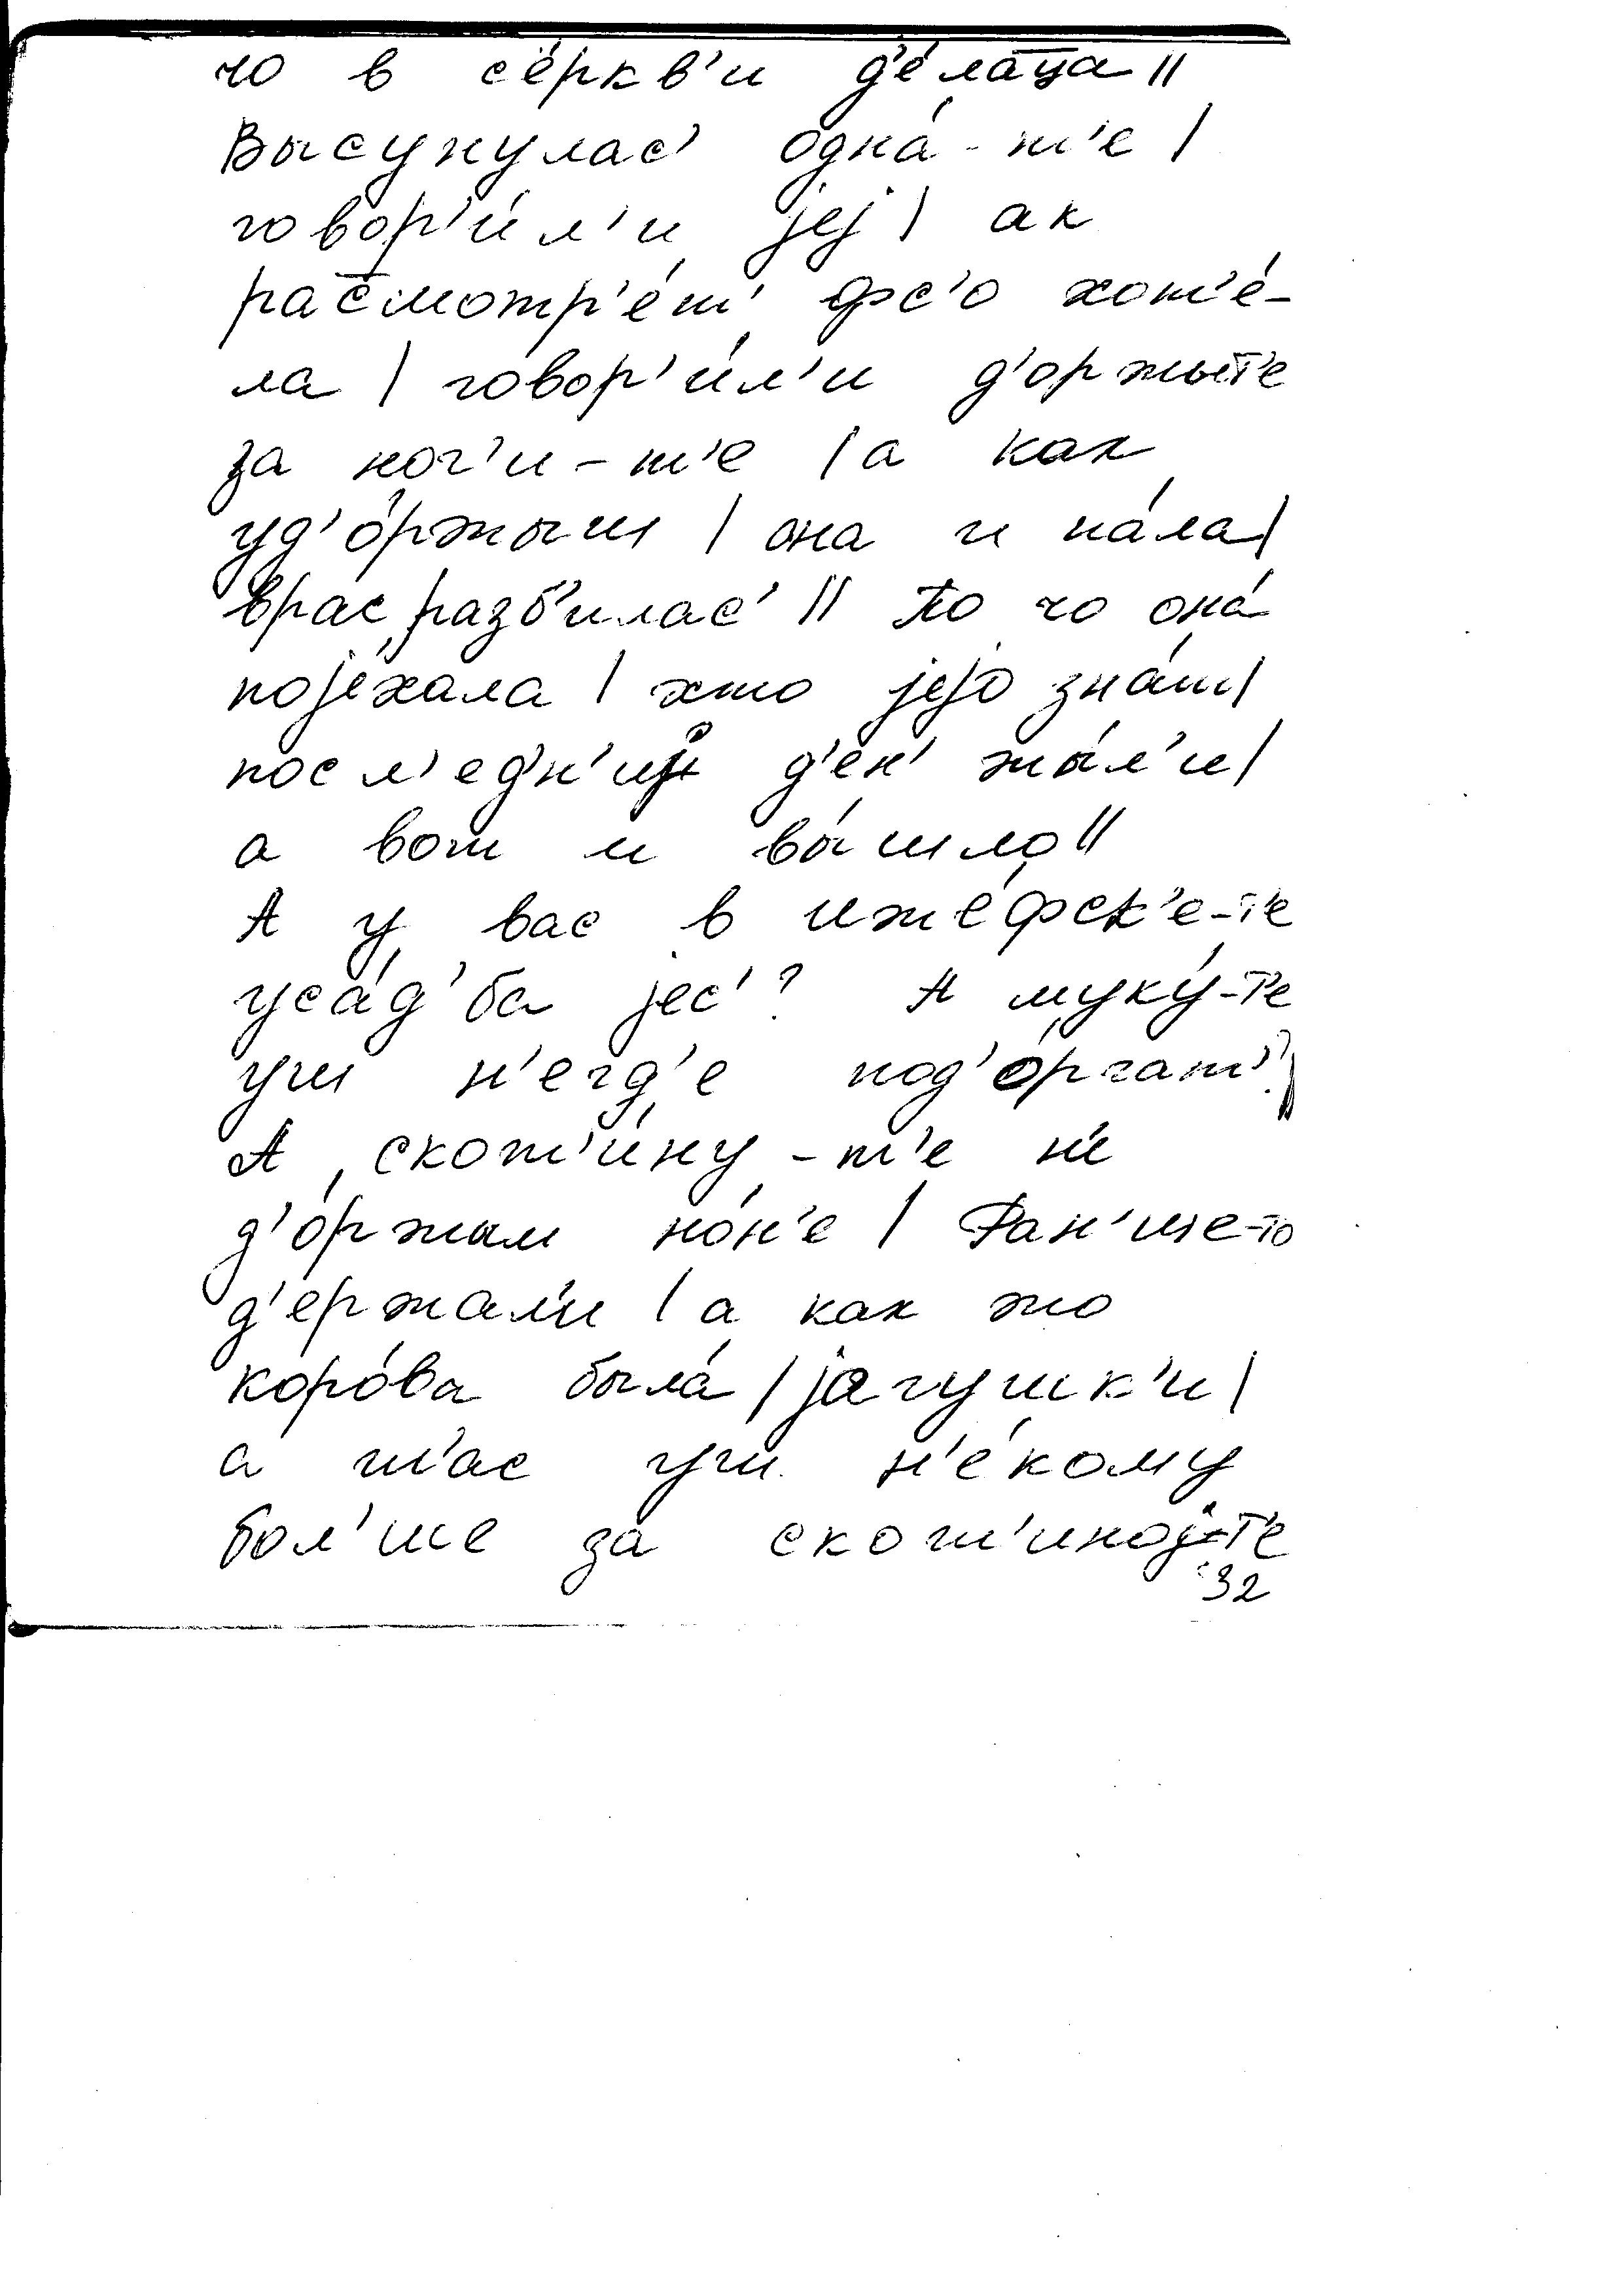 чо в се́ркв'и д'е́лац̅а ||
Высунулас' одна́-т'е |
говор'и́л'и јеј | ак
рас̅мотр'е́т' фс'о хот'е́-
ла | говор'и́л'и д'оржыт'е
за ног'и-т'е | а как
уд'о́ржыш | она и па́ла |
врас разб'илас' || По чо она́
појехала | хто јејо́ зна́т |
посл'едн'иј д'ен' жы́л'и |
а вот и вы́шло ||
А у вас в иже́фск'е-т'е
уса́д'ба јес'? А муку́-т'е
уш н'егд'е под'о́ргат'?
А скот'и́ну-т'е н'е
д'о́ржым но́н'е | Ран'ше-то
д'ержал'и | а как жо
коро́ва была́ | јагушк'и |
а ш'ас уш н'е́кому
бол'ше за скот'иној-т'е
32